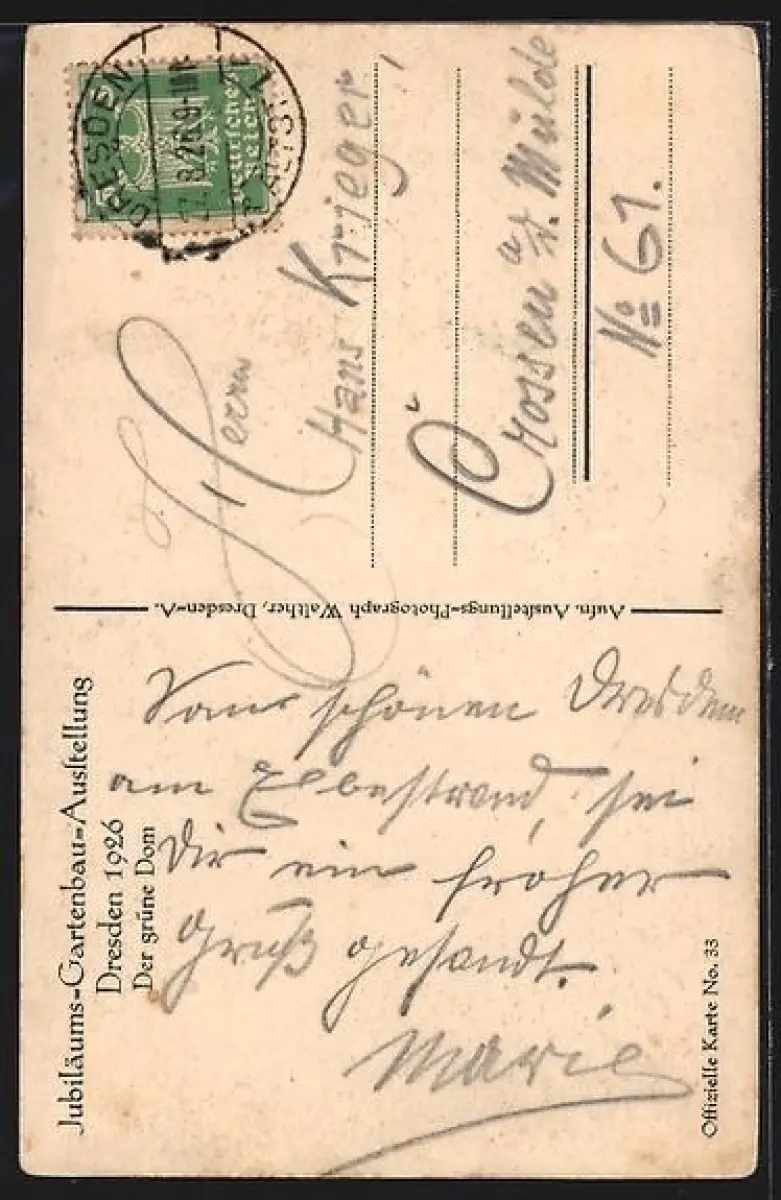 Jubiläums-Gartenbau-Ausstellung
Dresden 1926
Der grüne Dom
Vom schönen Dresden
am Elbestrand, sei
Dir ein froher
Gruß gesandt.
Marie
Offizielle Karte No. 33
Aufn. Ausstellungs-Photograph Walther, Dresden-A.
DRESDEN
ALTST.
8.26.9-10
Deutsches
Reich
5
Herrn
Hans Krieger,
Crossen a/d. Mulde
No 61.